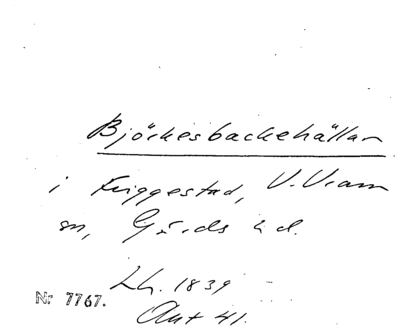 Björkesbackehällan
i Friggestad, V. Vram
sn, Gärds hd.
Lh. 1839
Nr 7767.
Ant 41.